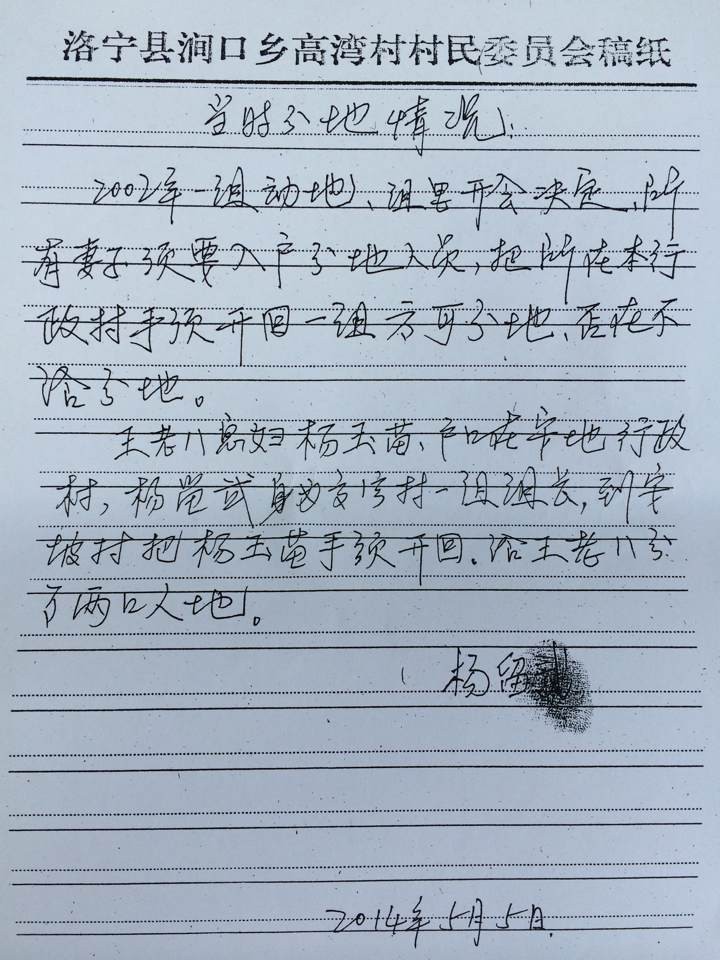 洛宁县涧口乡高湾村村民委员会稿纸
当时分地情况:
2002年一组动地、组里开会决定、所
有妻子须要入户分地人员,把所在本行
政村手须开回一组方可分地、否在不
给分地。
王老八息妇杨玉苗、户口在安地行政
村,杨 武身为高湾村一组组长,到安
坡村把杨玉苗手须开回、给王老八分
了两口人地。
杨留
2014年5月5日